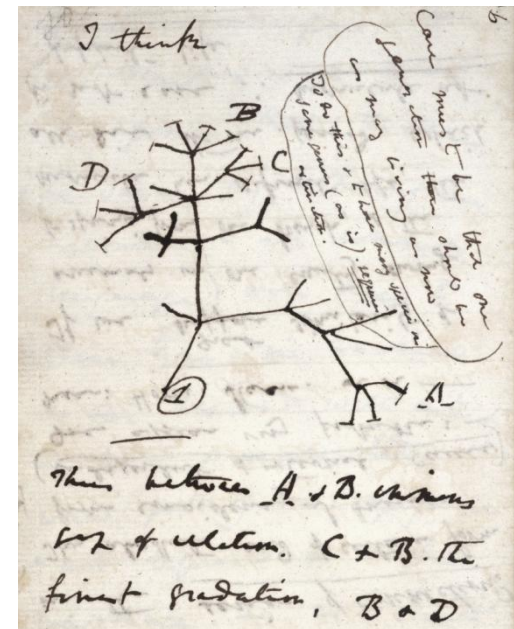 I think
Case must be that one
generation then should be
as many living as now
To do this & to have many species in
same genus (as is). requires
extinction.
B
C
D
A
1
Thus between A & B. immens
gap of relation. C & B. the
finest gradation, B & D